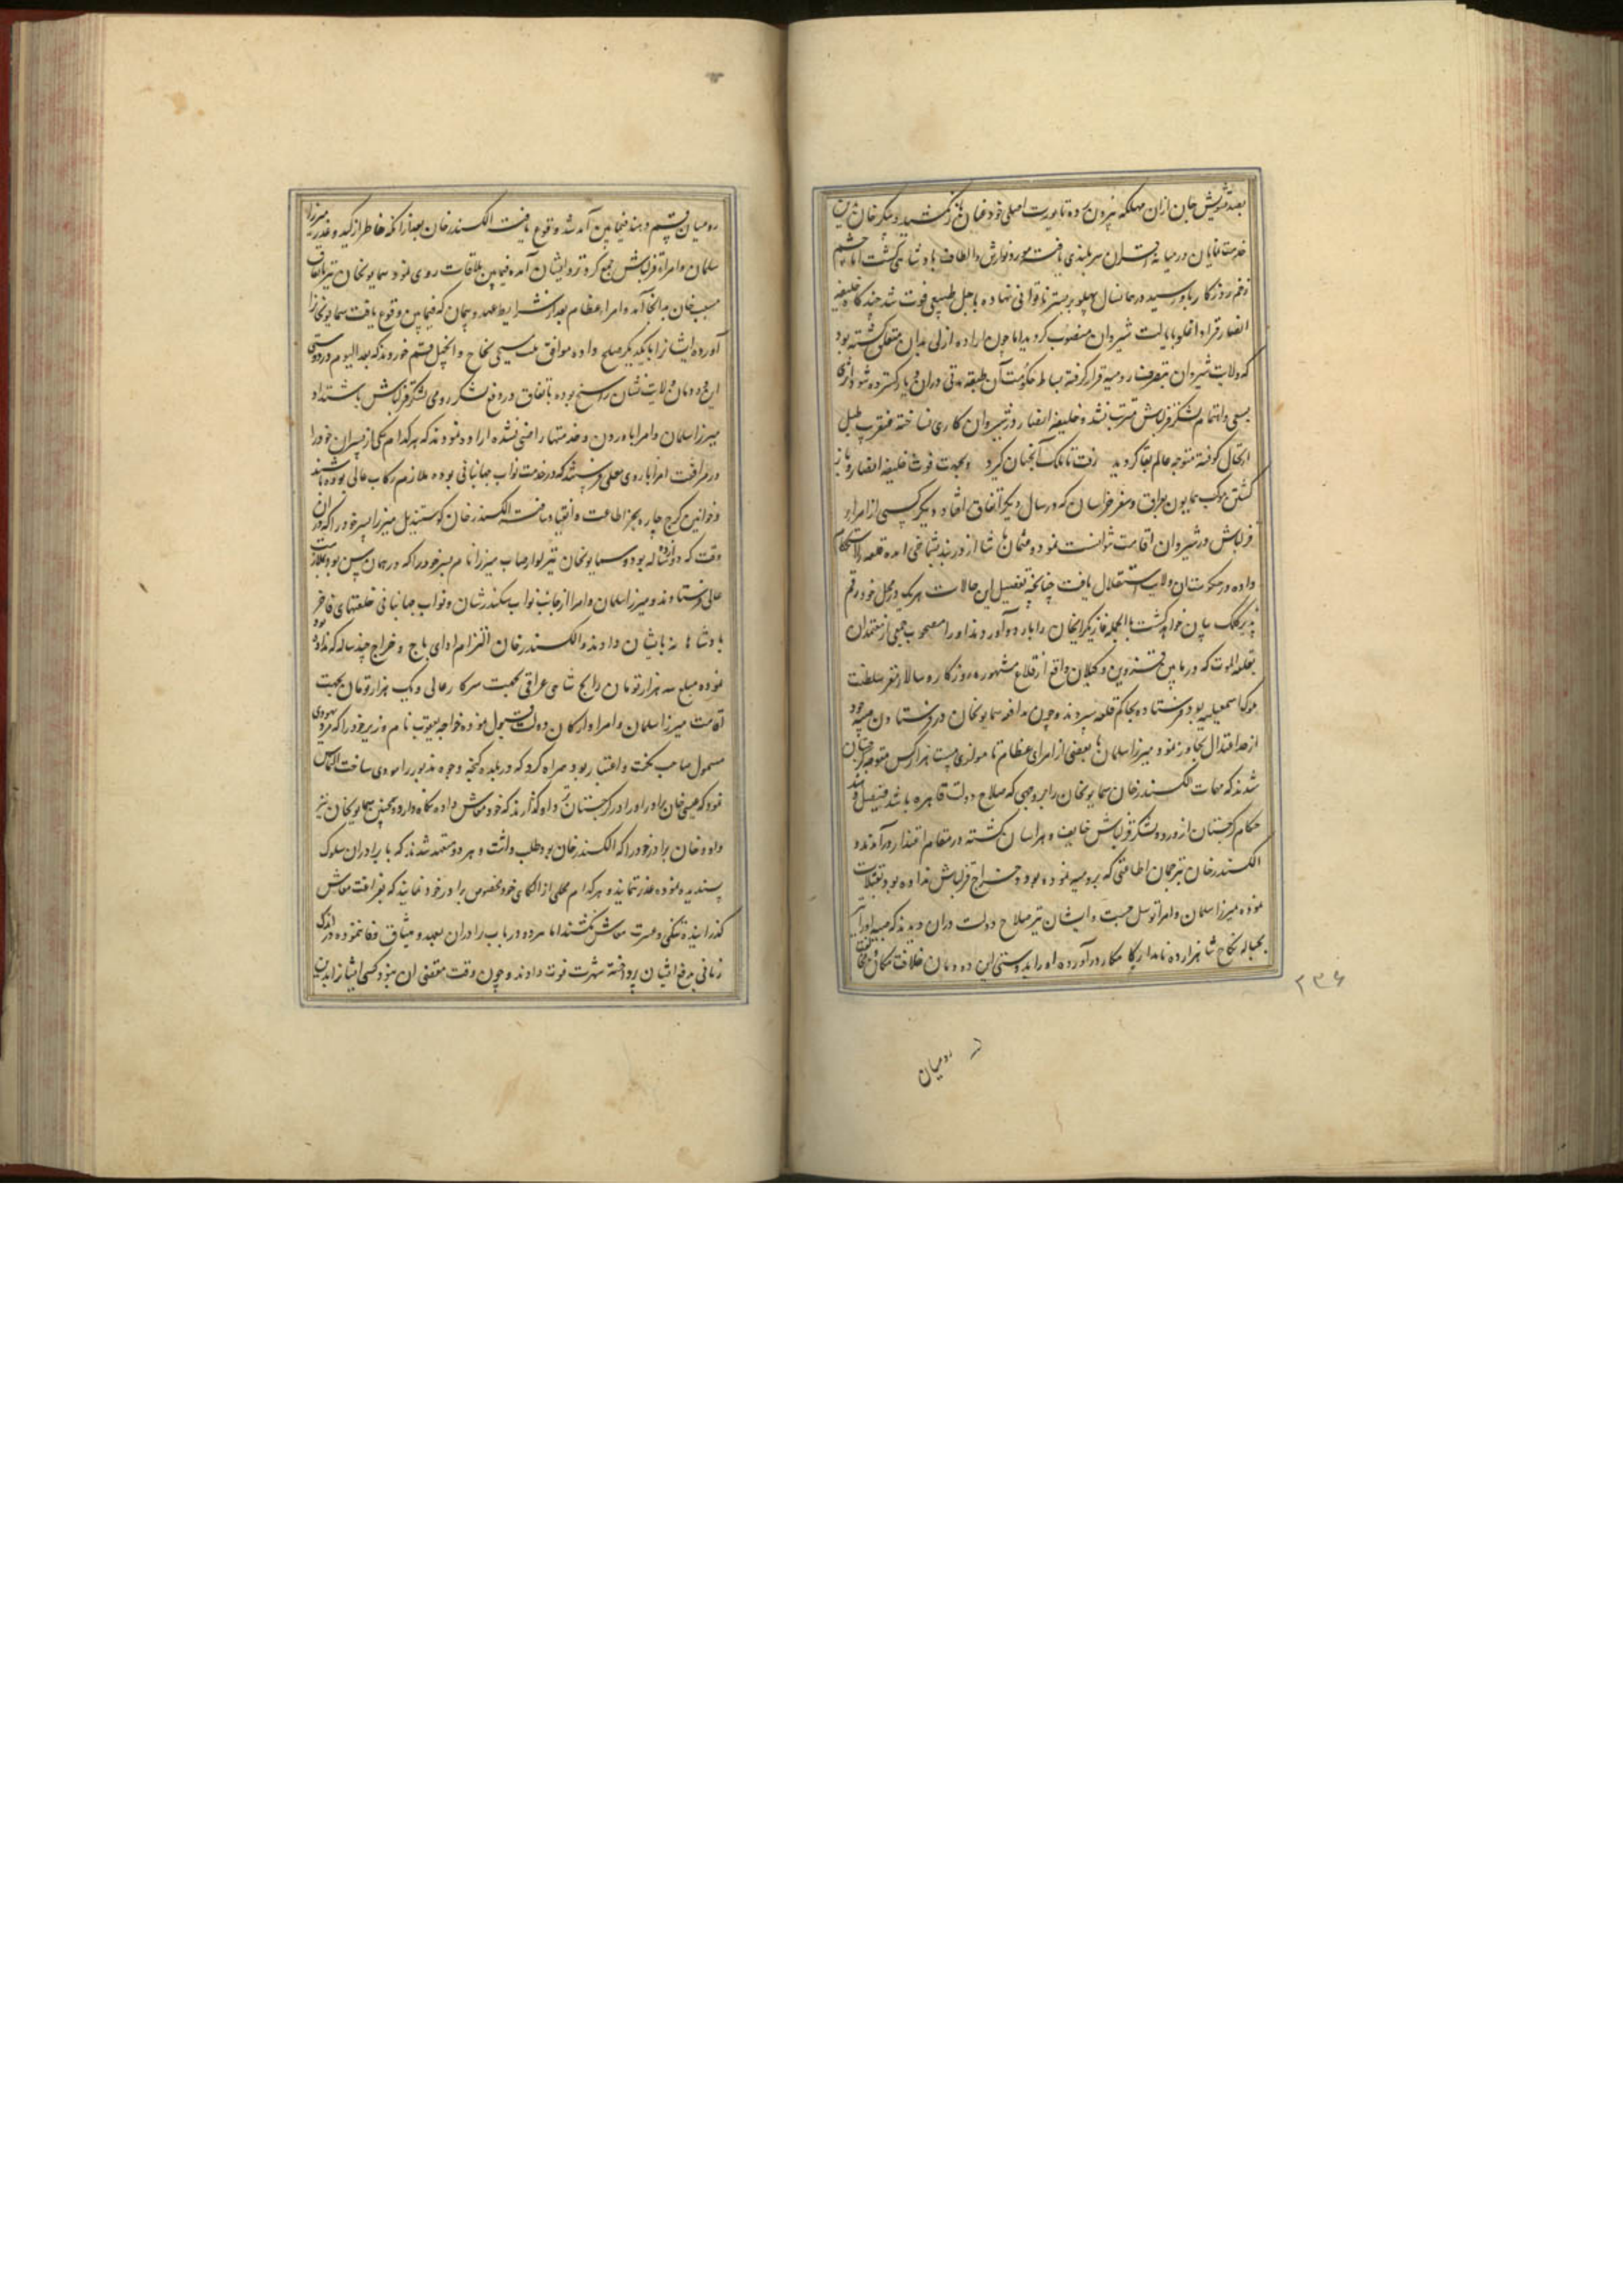 بصد تشویش جان ازان مهلکه بیرون برده تا یورت اصلی خود عنان باز نکشید و بیکر خان بدین
خدمت نمایان در میانه اقران سربلندی یافت مورد نوازش و الطاف پادشاهی گشت اما چشم
زخم روزکار باو رسید در همانسال پهلو بر بستر ناتوانی نهاده باجل طبیعی فوت شد چندگاه خلیفه
انصار قراداغلو بایالت شیروان منصوب کردید اما چون اراده ازلی بدان متعلق گشته بود
که ولایت شیروان بتصرف رومیه قرار گرفته بساط حکومت آن طبقه مدتی دران دیار گسترده شود اثری
بسعی و اهتمام لشکر قزلباش مترتب نشد و خلیفه انصار در شیروان کاری نساخته عنقریب طبل
ارتحال کوفته متوجه عالم بقا کردید رفت تا ملک آنجهان گیرد و بجهت فوت خلیفه انصار و روانه
گشتن موکب همایون بعراق و سفر خراسان که در سال دیگر اتفاق افتاد دیگر کسی از امراء
قزلباش در شیروان اقامت نتوانست نمود و عثمان پاشا از دربند بشماخی آمده قلعه را استحکام
داده در حکومت ان ولایت استقلال یافت چنانچه تفصیل این حالات هر یک در محل خود رقم
پذیر کلک بیان خواهد گشت بالجمله غازیکرایخان را باردو آوردند او را مصحوب جمعی از معتمدان
بقلعه الموت که در مابین قزوین و گیلان واقع از قلاع مشهوره روزگار و سالها مقر سلطنت
ملوک اسمعیلیه بود فرستاده بحاکم قلعه سپردند و چون مدافعه سمایونخان در فرستادن صبیه خود
از حد اعتدال تجاوز نمود میرزا سلمان با بعضی از امرای عظام تا موازی بیست هزار کس متوجه گرجستان
شدند که مهمات الکسندرخان و سمایونخان را بر وجهی که صلاح دولت قاهره باشد فیصل دهند
حکام گرجستان از ورود لشکر قزلباش خایف و هراسان گشته در مقام اعتذار درآمدند و
الکسندر خان بترجمان اطاعتی که برومیه نموده بود و خراج قزلباش نداده بود تقبلات
نموده میرزا سلمان و امرا توسل جست و ایشان نیز صلاح دولت دران دیدند که صبیه او را
بحباله نکاح شاهزاده نامدار کامکار درآورده او را بدوستی این دودمان خلافت مکان و مخالفت
۲۳۶
رومیان
رومیان قسم دهند فیمابین آمد شد وقوع یافت الکسندرخان بعد از انکه خاطر از کید و غدر میرزا
سلمان و امراء قزلباش جمع کرد نزد ایشان آمده فیمابین ملاقات روی نمود سمایونخان نیز باتفاق
مسیب خان بدانجا آمد و امراء عظام بعد از شرایط عهد و پیمان که فیمابین وقوع یافت سمایونخانرا
آورده ایشانرا بایکدیگر صلح داده موافق ملت مسیحی بحاج و انجیل قسم خوردند که بعد الیوم در دوستی
این دودمان ولایت نشان راسخ بوده باتفاق در دفع لشکر رومی لشکر قزلباش باشند و
میرزا سلمان و امرا باوردن و خدمتها راضی نشده اراده نمودند که هر کدام یکی از پسران خود را
در مرافقت امرا باردوی معلی فرستند که در خدمت نواب جهانبانی بوده ملازم رکاب عالی بوده باشند
و خوانین گرج چاره بجز اطاعت و انقیاد نیافته الکسندرخان کوستندیل میرزا پسر خود را که دران
وقت که دوازده ساله بود و سمایونخان نیز لوارصاب میرزا نام پسر خود را که در همان سن بود بملازمت
عالی فرستادند و میرزا سلمان و امرا از جانب نواب سکندر شان و نواب جهانبانی خلعتهای فاخر
پادشاهانه بایشان دادند و الکسندرخان التزام ادای باج و خراج چند ساله که نداده بود
نموده مبلغ سه هزار تومان رایج شاهی عراقی بجهت سرکار عالی و یک هزار تومان بجهت
اقامت میرزا سلمان و امراء و ارکان دولت قبول نموده خواجه یعقوب نام وزیر خود را که مرد یهودی
متمول صاحب مکنت و اعتبار بود همراه کرد که در بلده گنجه وجوه مذبور را مودی ساخت التماس
نمود که عیسی خان برادر او را در گرجستان باو گذارند که خود معاش داده نگاه دارد و همچنین سمایونخان نیز
داود خان برادر خود را که الکسندرخان بود طلب داشت و هر دو متعهد شدند که با برادران سلوک
پسندیده نموده عذر ننمایند و هر کدام محلی از الکای خود مخصوص برادر خود نمایند که بفراغت معاش
گذرانیده تنگی و عسرت معاش نکشند اما هر دو در باب برادران بعهد و میثاق وفا ننموده در اندک
زمانی بدفع ایشان پرداخته شهرت فوت دادند و چون وقت مقتضی ان نبود کسی ایشانرا بدین